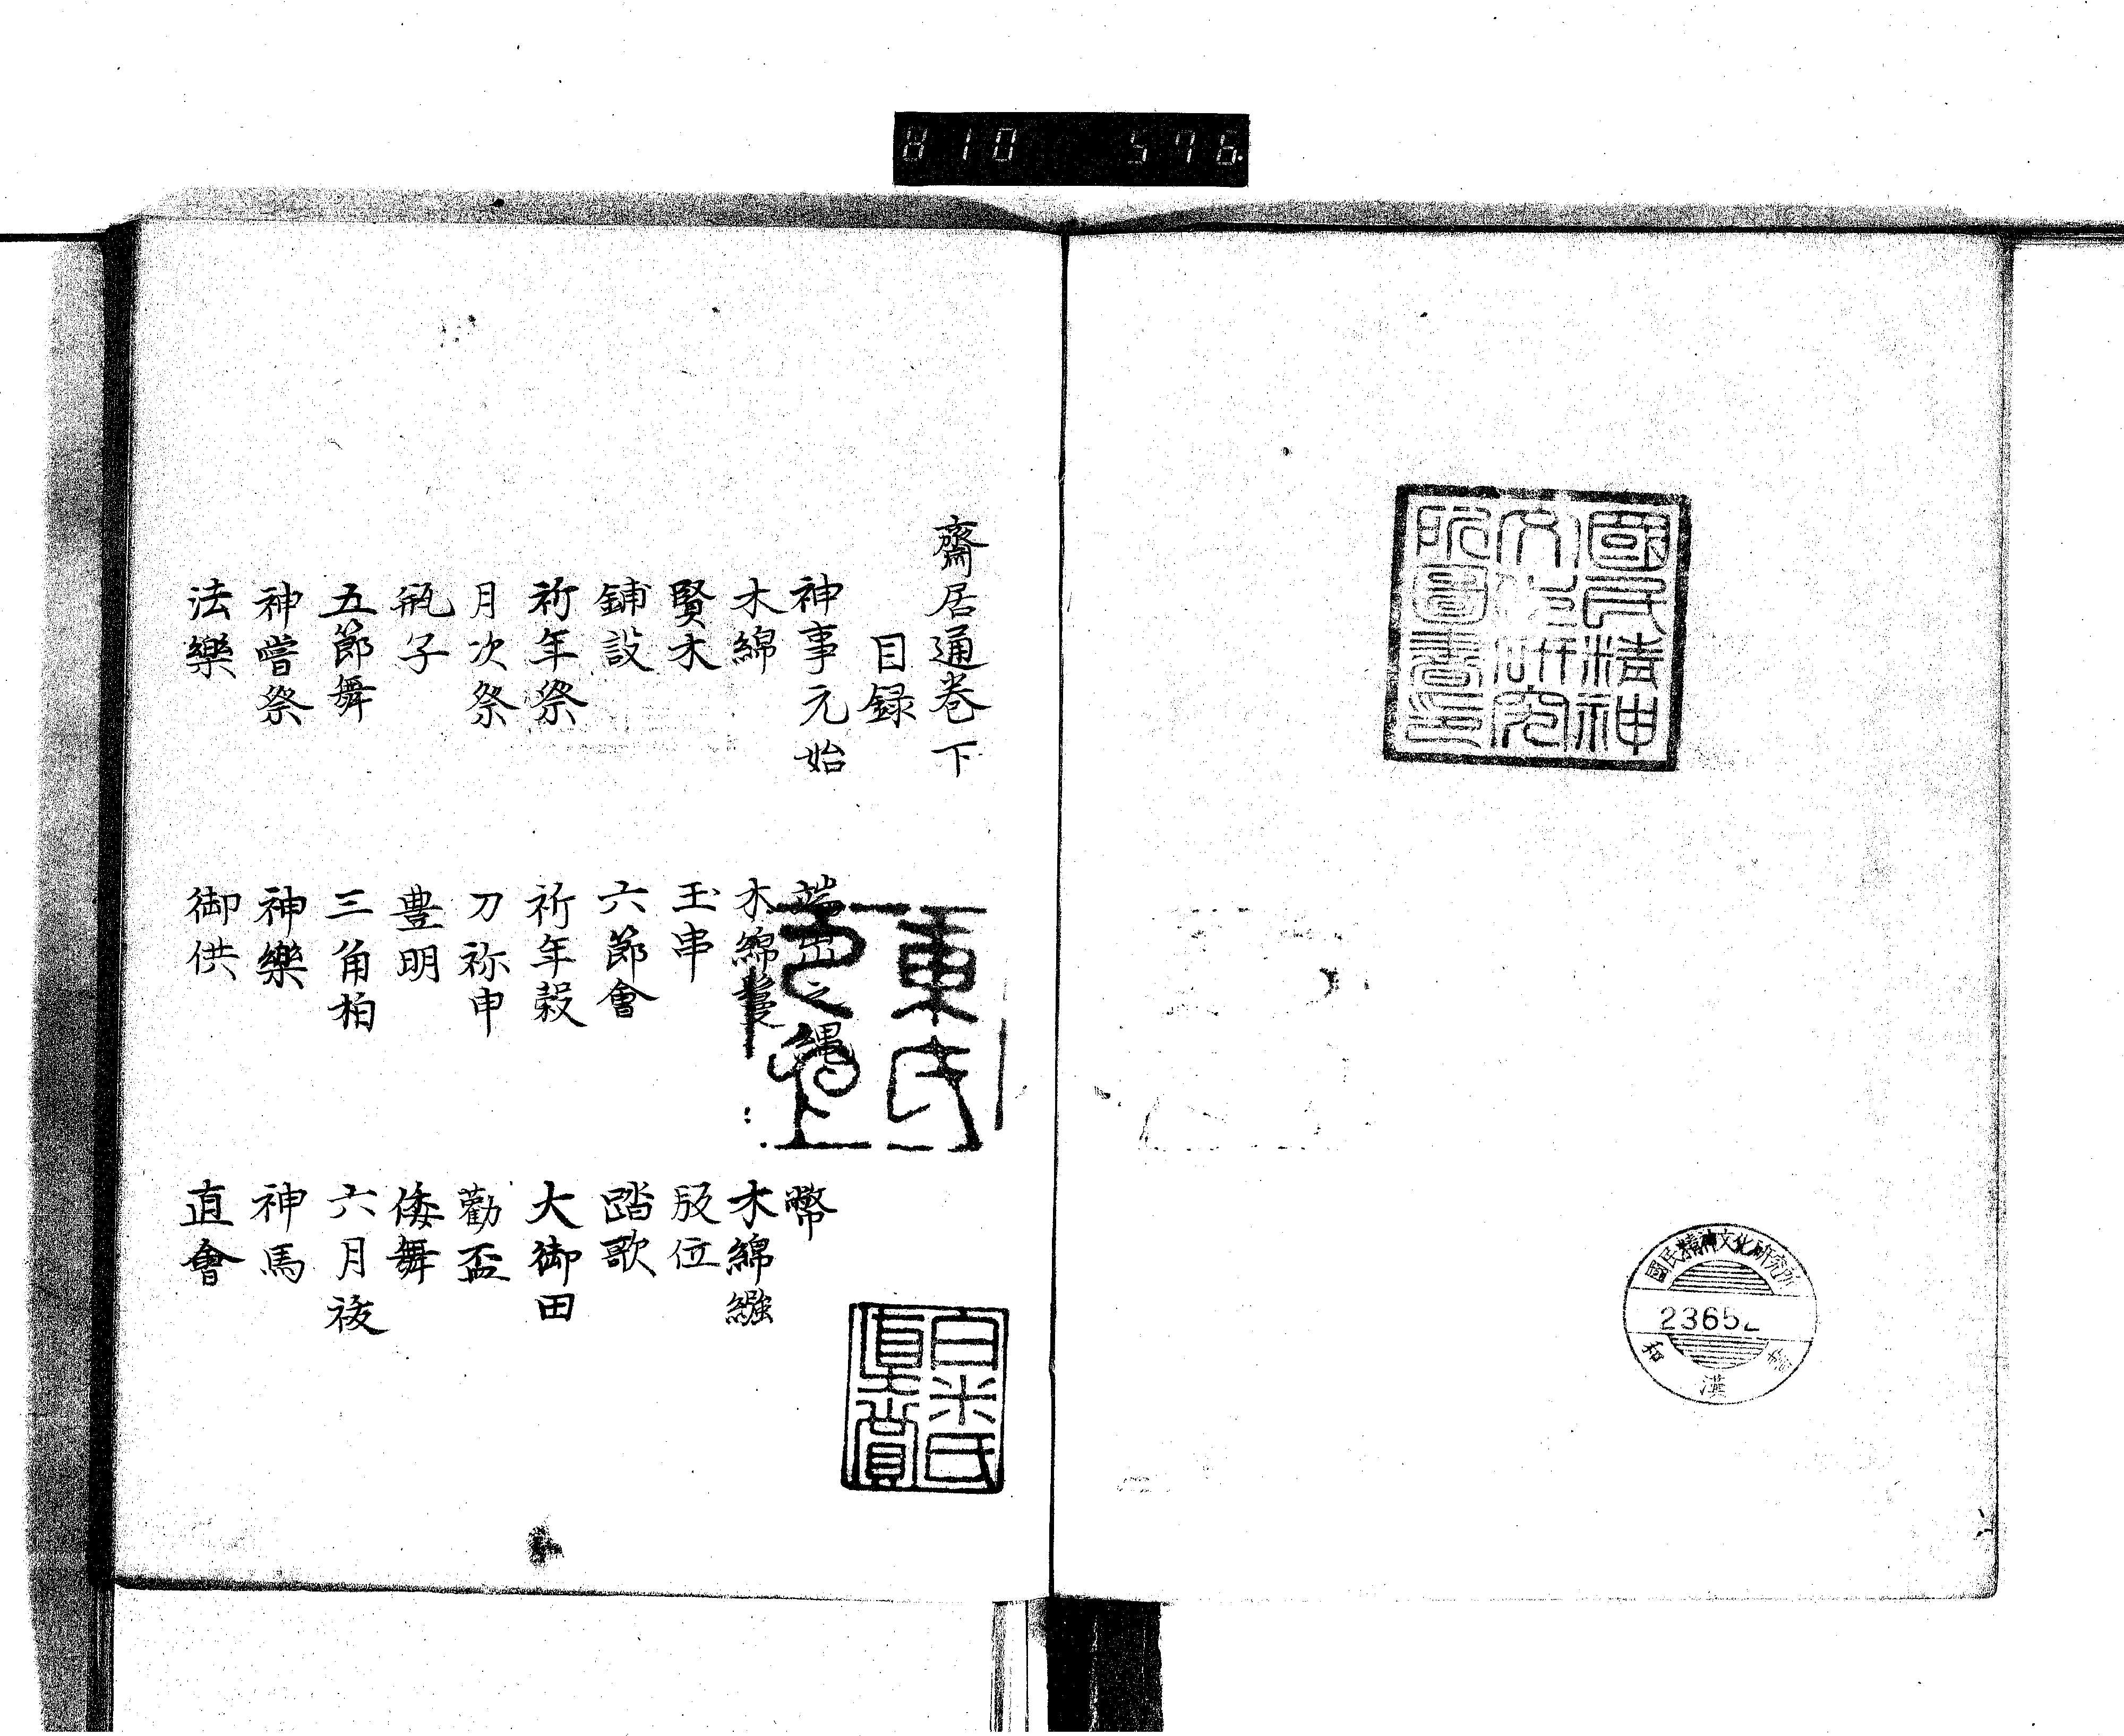 H10 576.
國民精神
文化研究
所圖書印
國民精神文化研究所
和漢書
齋居通巻下
目録
神事元始 端出之縄 幣
木綿 木綿鬘 木綿繦
賢木 玉串 版位
鋪設 六節會 踏歌
祈年祭 祈年穀 大御田
月次祭 刀祢申 勸盃
瓶子 豊明 倭舞
五節舞 三角柏 六月祓
神嘗祭 神樂 神馬
法樂 御供 直會
白米氏